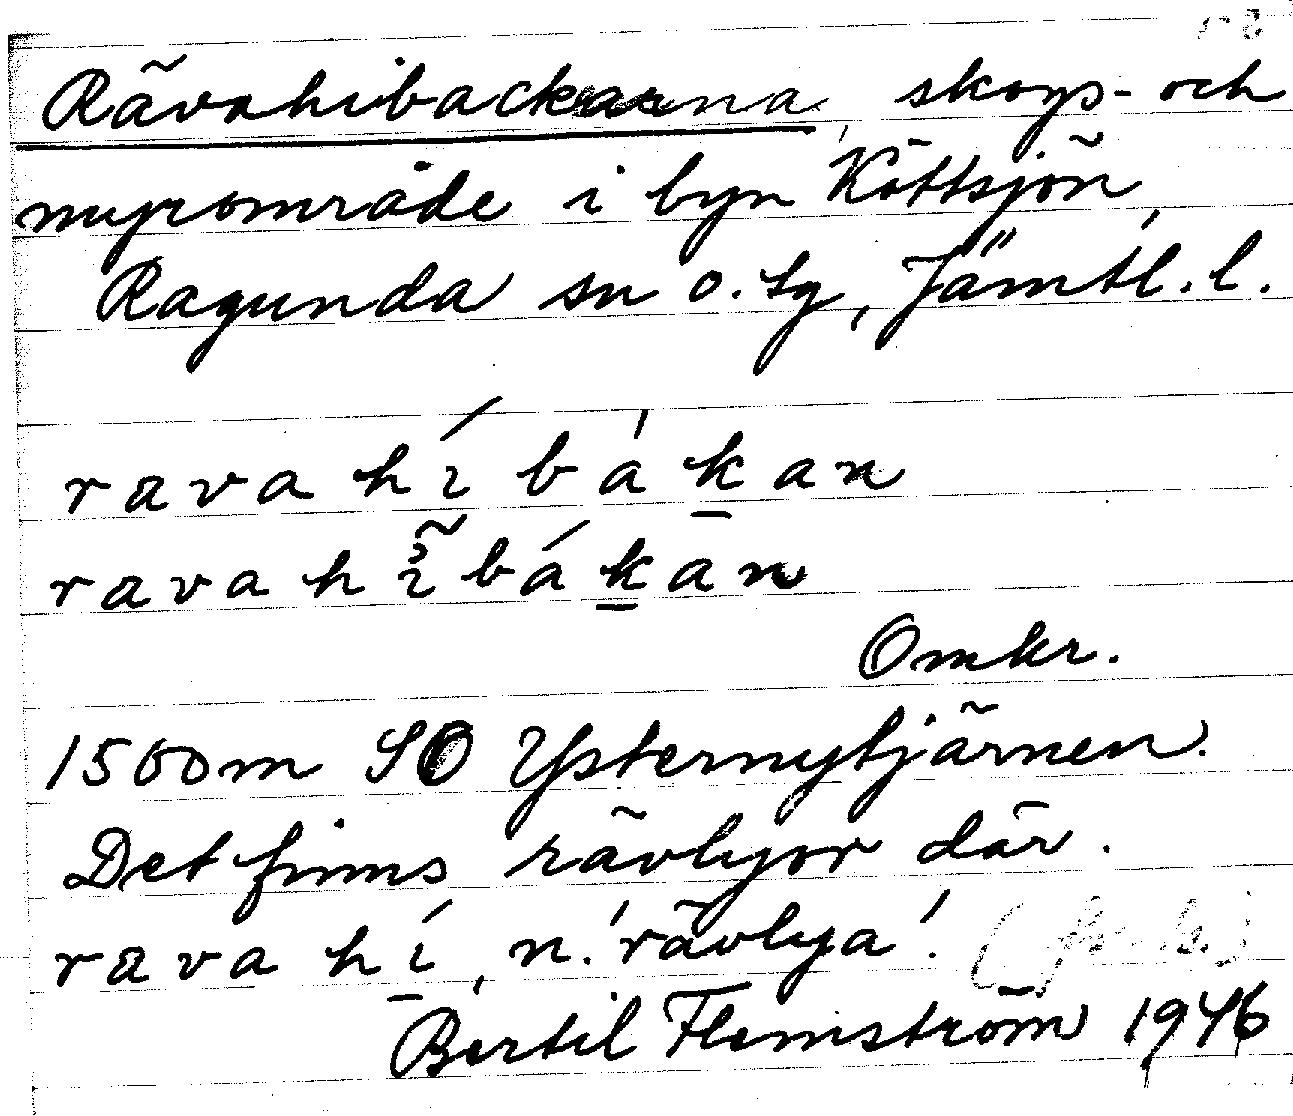 Rävahibackarna, skogs- och
myrområde i byn Köttsjön,
Ragunda sn o. tg, Jämtl. l.
rava hí bákan
rava hı̃ bákan
Omkr.
1500m SO Ystermytjärnen.
Det finns rävlyor där.
rava hí, n. 'rävlya'.
Bertil Flemström 1946